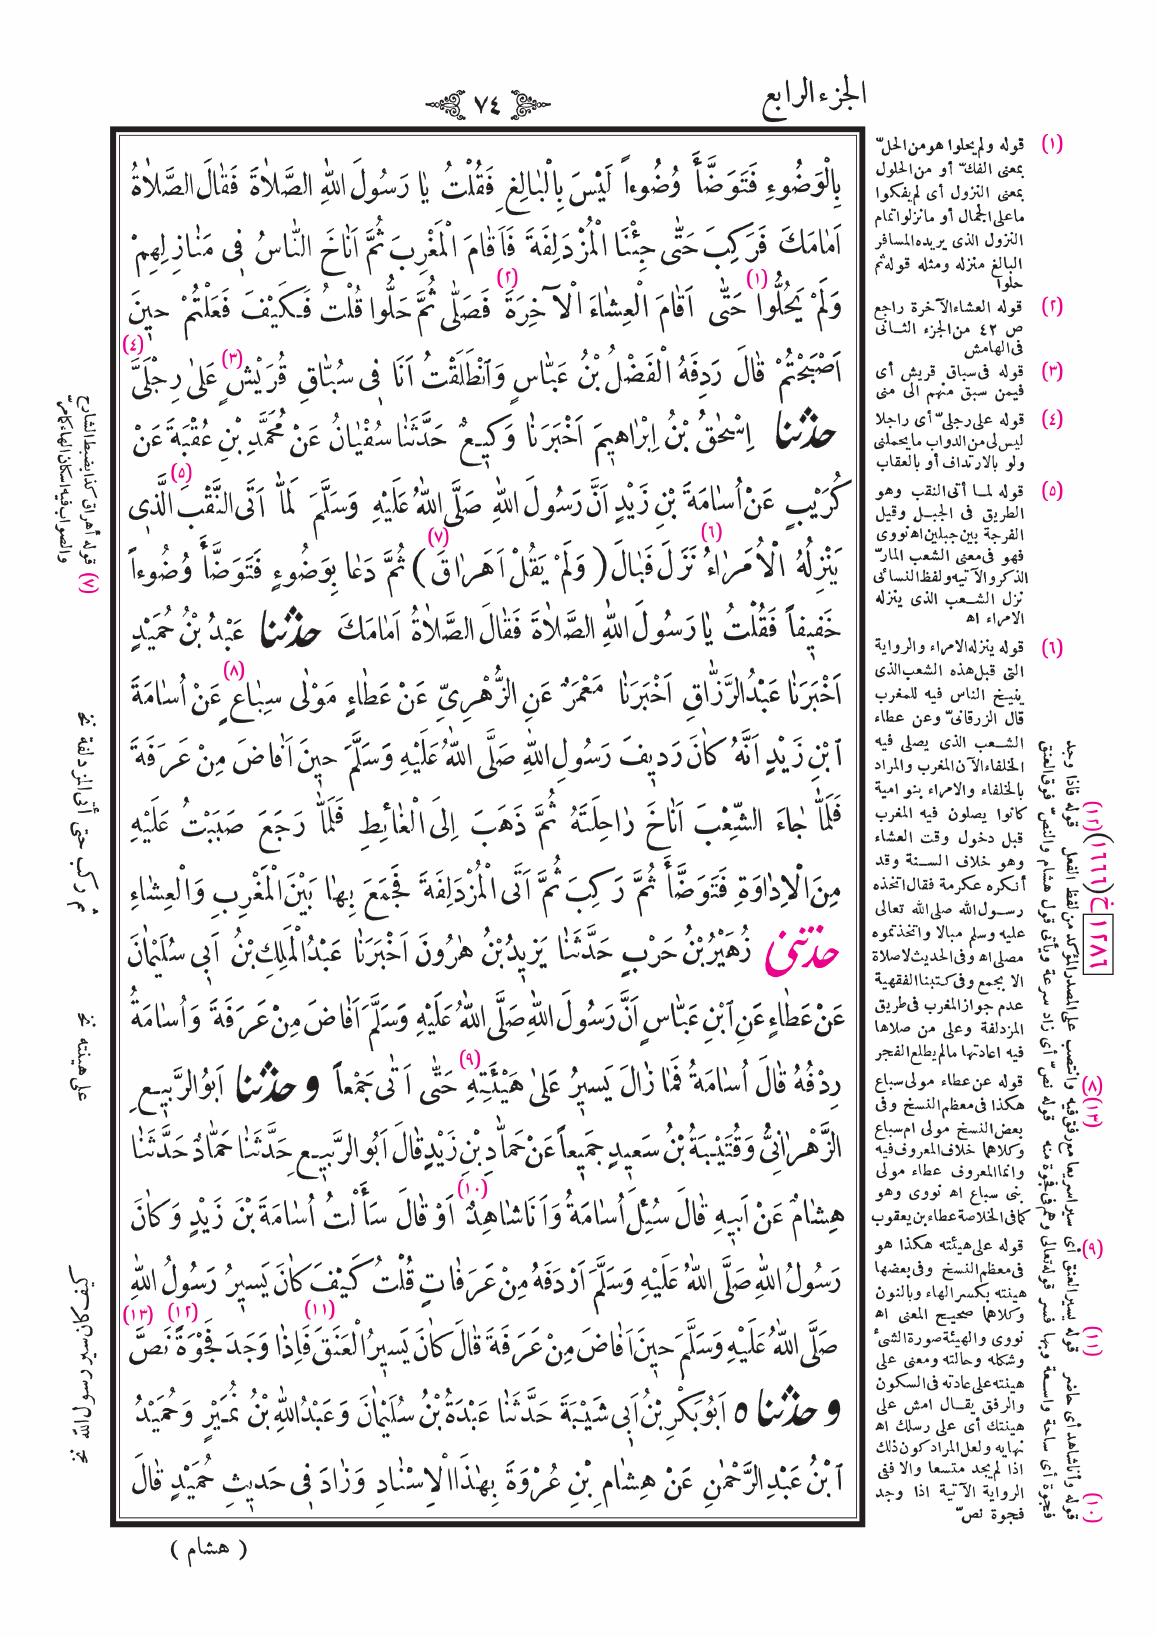 الجزء الرابع
٧٤
بِالْوَضُوءِ فَتَوَضَّأَ وُضُوءاً لَيْسَ بِالْبَالِغِ فَقُلْتُ يَا رَسُولَ اللهِ الصَّلَاةَ فَقَالَ الصَّلَاةُ
اَمَامَكَ فَرَكِبَ حَتَّى جِئْنَا الْمُزْدَلِفَةَ فَاَقَامَ الْمَغْرِبَ ثُمَّ اَنَاخَ النَّاسُ فِى مَنَازِلِهِمْ
وَلَمْ يَحُلُّوا (١) حَتَّى اَقَامَ الْعِشَاءَ الْآخِرَةَ (٢) فَصَلَّى ثُمَّ حَلُّوا قُلْتُ فَكَيْفَ فَعَلْتُمْ حينَ
اَصْبَحْتُمْ قَالَ رَدِفَهُ الْفَضْلُ بْنُ عَبَّاسٍ وَانْطَلَقْتُ اَنَا فِى سُبَّاقِ قُرَيْشٍ (٣) عَلَى رِجْلَىَّ (٤)
حدثنا اِسْحٰقُ بْنُ اِبْرَاهِيمَ اَخْبَرَنَا وَكِيعٌ حَدَّثَنَا سُفْيَانُ عَنْ مُحَمَّدِ بْنِ عُقْبَةَ عَنْ
كُرَيْبٍ عَنْ اُسَامَةَ بْنِ زَيْدٍ اَنَّ رَسُولَ اللهِ صَلَّى اللهُ عَلَيْهِ وَسَلَّمَ لَمَّا اَتَى النَّقْبَ (٥) الَّذِى
يَنْزِلُهُ الْاُمَرَاءُ (٦) نَزَلَ فَبَالَ ( وَلَمْ يَقُلْ اَهَرَاقَ (٧) ) ثُمَّ دَعَا بِوَضُوءٍ فَتَوَضَّأَ وُضُوءاً
خَفيفاً فَقُلْتُ يَا رَسُولَ اللهِ الصَّلَاةَ فَقَالَ الصَّلَاةُ اَمَامَكَ حدثنا عَبْدُ بْنُ حُمَيْدٍ
اَخْبَرَنَا عَبْدُ الرَّزَّاقِ اَخْبَرَنَا مَعْمَرٌ عَنِ الزُّهْرِىِّ عَنْ عَطَاءٍ مَوْلَى سِبَاعٍ (٨) عَنْ اُسَامَةَ
ابْنِ زَيْدٍ اَنَّهُ كَانَ رَديفَ رَسُولِ اللهِ صَلَّى اللهُ عَلَيْهِ وَسَلَّمَ حينَ اَفَاضَ مِنْ عَرَفَةَ
فَلَمَّا جَاءَ الشِّعْبَ اَنَاخَ رَاحِلَتَهُ ثُمَّ ذَهَبَ اِلَى الْغَائِطِ فَلَمَّا رَجَعَ صَبَبْتُ عَلَيْهِ
مِنَ الْاِدَاوَةِ فَتَوَضَّأَ ثُمَّ رَكِبَ ثُمَّ اَتَى الْمُزْدَلِفَةَ فَجَمَعَ بِهَا بَيْنَ الْمَغْرِبِ وَالْعِشَاءِ
حدثنى زُهَيْرُ بْنُ حَرْبٍ حَدَّثَنَا يَزيدُ بْنُ هٰرُونَ اَخْبَرَنَا عَبْدُ الْمَلِكِ بْنُ اَبِى سُلَيْمَانَ
عَنْ عَطَاءٍ عَنِ ابْنِ عَبَّاسٍ اَنَّ رَسُولَ اللهِ صَلَّى اللهُ عَلَيْهِ وَسَلَّمَ اَفَاضَ مِنْ عَرَفَةَ وَاُسَامَةُ
رِدْفُهُ قَالَ اُسَامَةُ فَمَا زَالَ يَسيرُ عَلَى هَيْئَتِهِ (٩) حَتَّى اَتَى جَمْعاً وحدثنا اَبُو الرَّبيعِ
الزَّهْرَانِىُّ وَقُتَيْبَةُ بْنُ سَعيدٍ جَميعاً عَنْ حَمَّادِ بْنِ زَيْدٍ قَالَ اَبُو الرَّبيعِ حَدَّثَنَا حَمَّادٌ حَدَّثَنَا
هِشَامٌ عَنْ اَبيهِ قَالَ سُئِلَ اُسَامَةُ وَاَنَا شَاهِدٌ (١٠) اَوْ قَالَ سَأَلْتُ اُسَامَةَ بْنَ زَيْدٍ وَكَانَ
رَسُولُ اللهِ صَلَّى اللهُ عَلَيْهِ وَسَلَّمَ اَرْدَفَهُ مِنْ عَرَفَاتٍ قُلْتُ كَيْفَ كَانَ يَسيرُ رَسُولُ اللهِ
صَلَّى اللهُ عَلَيْهِ وَسَلَّمَ حينَ اَفَاضَ مِنْ عَرَفَةَ قَالَ كَانَ يَسيرُ الْعَنَقَ (١١) فَاِذَا وَجَدَ فَجْوَةً (١٢) نَصَّ (١٣)
وحدثنا ٥ اَبُو بَكْرِ بْنُ اَبِى شَيْبَةَ حَدَّثَنَا عَبْدَةُ بْنُ سُلَيْمَانَ وَعَبْدُ اللهِ بْنُ نُمَيْرٍ وَحُمَيْدُ
ابْنُ عَبْدِ الرَّحْمٰنِ عَنْ هِشَامِ بْنِ عُرْوَةَ بِهٰذَا الْاِسْنَادِ وَزَادَ فِى حَديثِ حُمَيْدٍ قَالَ
( هشام )
(١) قوله ولم يحلوا هو من الحلّ
بمعنى الفكّ أو من الحلول
بمعنى النزول أى لم يفكوا
ما على الجمال أو ما نزلوا تمام
النزول الذى يريده المسافر
البالغ منزله ومثله قوله ثم
حلوا
(٢) قوله العشاء الآخرة راجع
ص ٤٢ من الجزء الثانى
فى الهامش
(٣) قوله فى سباق قريش أى
فيمن سبق منهم الى منى
(٤) قوله على رجلىّ أى راجلا
ليس لى من الدواب ما يحملنى
ولو بالارتداف أو بالعقاب
(٥) قوله لما أتى النقب وهو
الطريق فى الجبل وقيل
الفرجة بين جبلين اه نووى
فهو فى معنى الشعب المارّ
الذكر والآتيه ولفظ النسائى
نزل الشعب الذى ينزله
الامراء اه
(٦) قوله ينزله الامراء والرواية
التى قبل هذه الشعب الذى
ينيخ الناس فيه للمغرب
قال الزرقانىّ وعن عطاء
الشعب الذى يصلى فيه
الخلفاء الآن المغرب والمراد
بالخلفاء والامراء بنو امية
كانوا يصلون فيه المغرب
قبل دخول وقت العشاء
وهو خلاف السنة وقد
أنكره عكرمة فقال اتخذه
رسول الله صلى الله تعالى
عليه وسلم مبالا واتخذتموه
مصلى اه وفى الحديث لاصلاة
الا بجمع وفى كتبنا الفقهية
عدم جواز المغرب فى طريق
المزدلفة وعلى من صلاها
فيه اعادتها مالم يطلع الفجر
(٨) قوله عن عطاء مولى سباع
هكذا فى معظم النسخ وفى
بعض النسخ مولى ام سباع
وكلاهما خلاف المعروف فيه
وانما المعروف عطاء مولى
بنى سباع اه نووى وهو
كما فى الخلاصة عطاء بن يعقوب
(٩) قوله على هيئته هكذا هو
فى معظم النسخ وفى بعضها
هينته بكسر الهاء وبالنون
وكلاهما صحيح المعنى اه
نووى والهيئة صورة الشئ
وشكله وحالته ومعنى على
هينته على عادته فى السكون
والرفق يقال امش على
هينتك أى على رسلك اه
نهايه ولعل المراد كون ذلك
اذا لم يجد متسعا والا ففى
الرواية الآتية اذا وجد
فجوة نصّ
(٧) قوله أهراق كذا بضبط الشارح
والصواب فيه اسكان الهاء كما مرّ
ثم ركب حتى أتى المزدلفة نخ
على هينته نخ
كيف كان سير رسول الله نخ
١٢٨٦ خ (١٦٦٦)
(١٠) قوله وأنا شاهد أى حاضر (١١) قوله يسير العنق أى سيرا سريعا مع رفق فيه وانتصب على المصدر المؤكد من لفظ الفعل (١٢) قوله فاذا وجد
فجوة أى ساحة واسعة وبها فسر قوله تعالى وهم فى فجوة منه (١٣) قوله نصّ أى زاد سرعة ويأتى قول هشام والنصّ فوق العنق